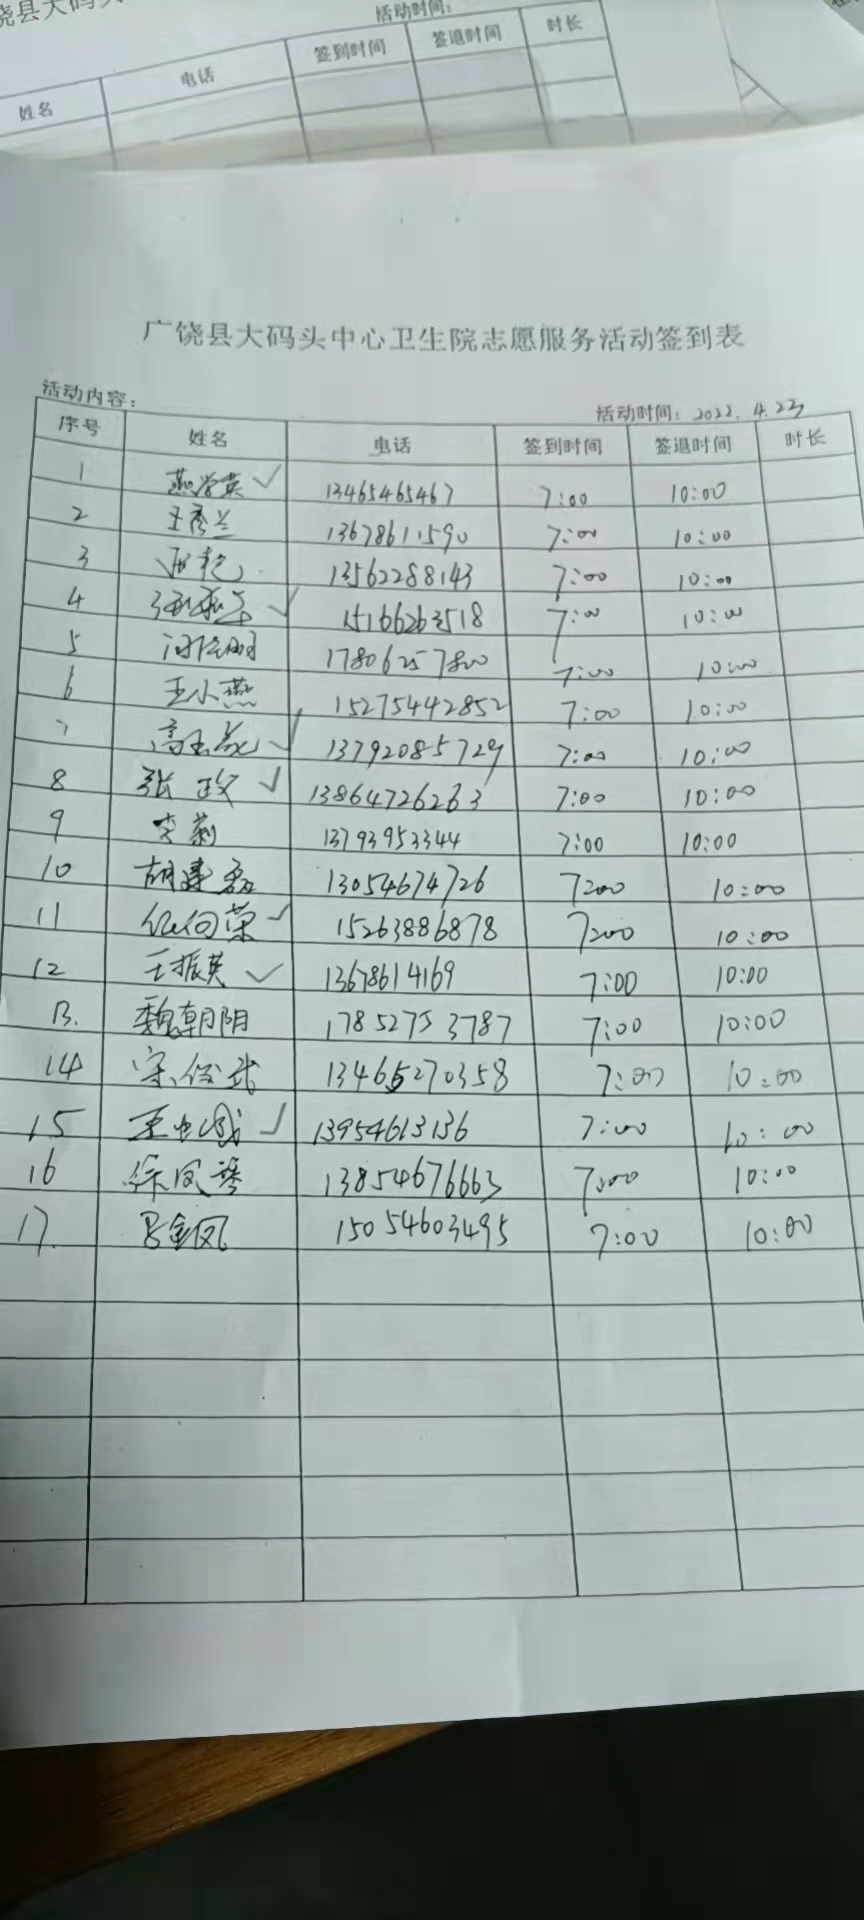 活动时间：
姓名 电话 签到时间 签退时间 时长
广饶县大码头中心卫生院志愿服务活动签到表
活动内容： 活动时间：2022.4.23
序号 姓名 电话 签到时间 签退时间 时长
1 燕学英 ✓ 13465465467 7:00 10:00
2 王秀兰 13678611590 7:00 10:00
3 13562288143 7:00 10:00
4 ✓ 15166263518 7:00 10:00
5 17806257800 7:00 10:00
6 王小燕 15275442852 7:00 10:00
7 ✓ 13792085729 7:00 10:00
8 张政 ✓ 13864726263 7:00 10:00
9 李莉 13793953344 7:00 10:00
10 胡建磊 13054674726 7:00 10:00
11 ✓ 15263886878 7:00 10:00
12 王振英 ✓ 13678614169 7:00 10:00
13. 魏朝阴 17852753787 7:00 10:00
14 13465270358 7:00 10:00
15 ✓ 13954613136 7:00 10:00
16 徐凤琴 13854676663 7:00 10:00
17. 吕金凤 15054603495 7:00 10:00